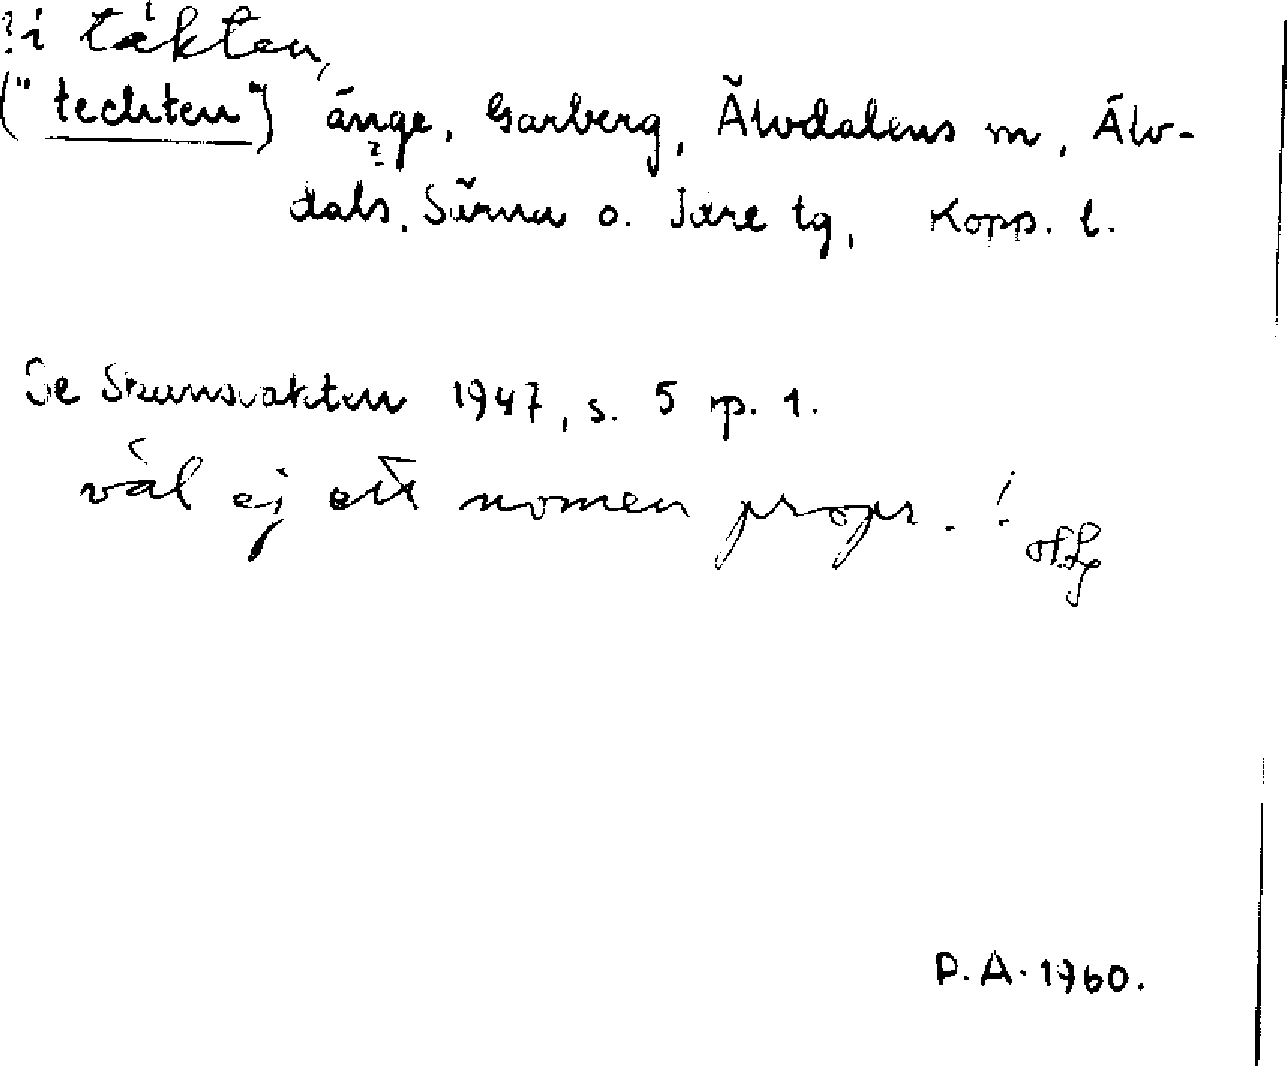 ? i täkten,
("techten") änge, Garberg, Älvdalens sn, Älv-
?
dals, Särna o. Idre tg, Kopp. l.
Se Skansvakten 1947, s. 5 sp. 1.
väl ej ett nomen propr. !
P.A. 1960.